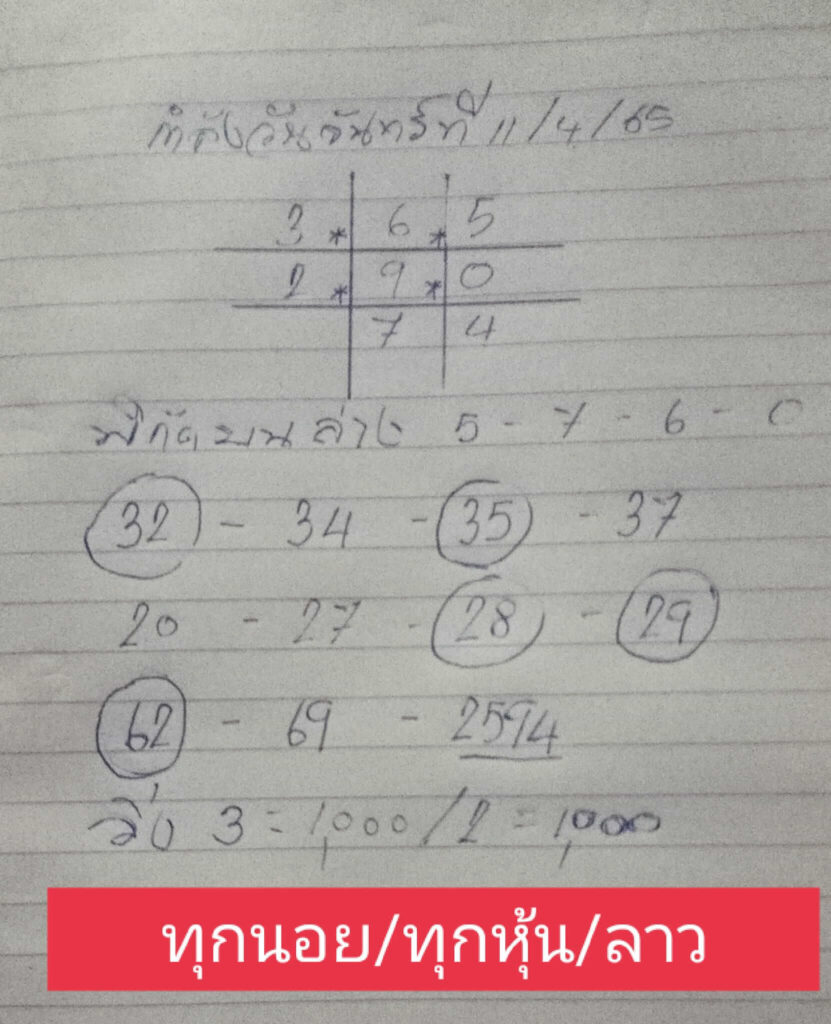 กำลังวันจันทร์ที่ 11/4/65
3 * 6 * 5
2 * 9 * 0
7 4
พิกัด บน ล่าง 5 - 7 - 6 - 0
32 - 34 - 35 - 37
20 - 27 - 28 - 29
62 - 69 - 2594
วิ่ง 3 = 1,000 / 2 = 1,000
ทุกนอย/ทุกหุ้น/ลาว